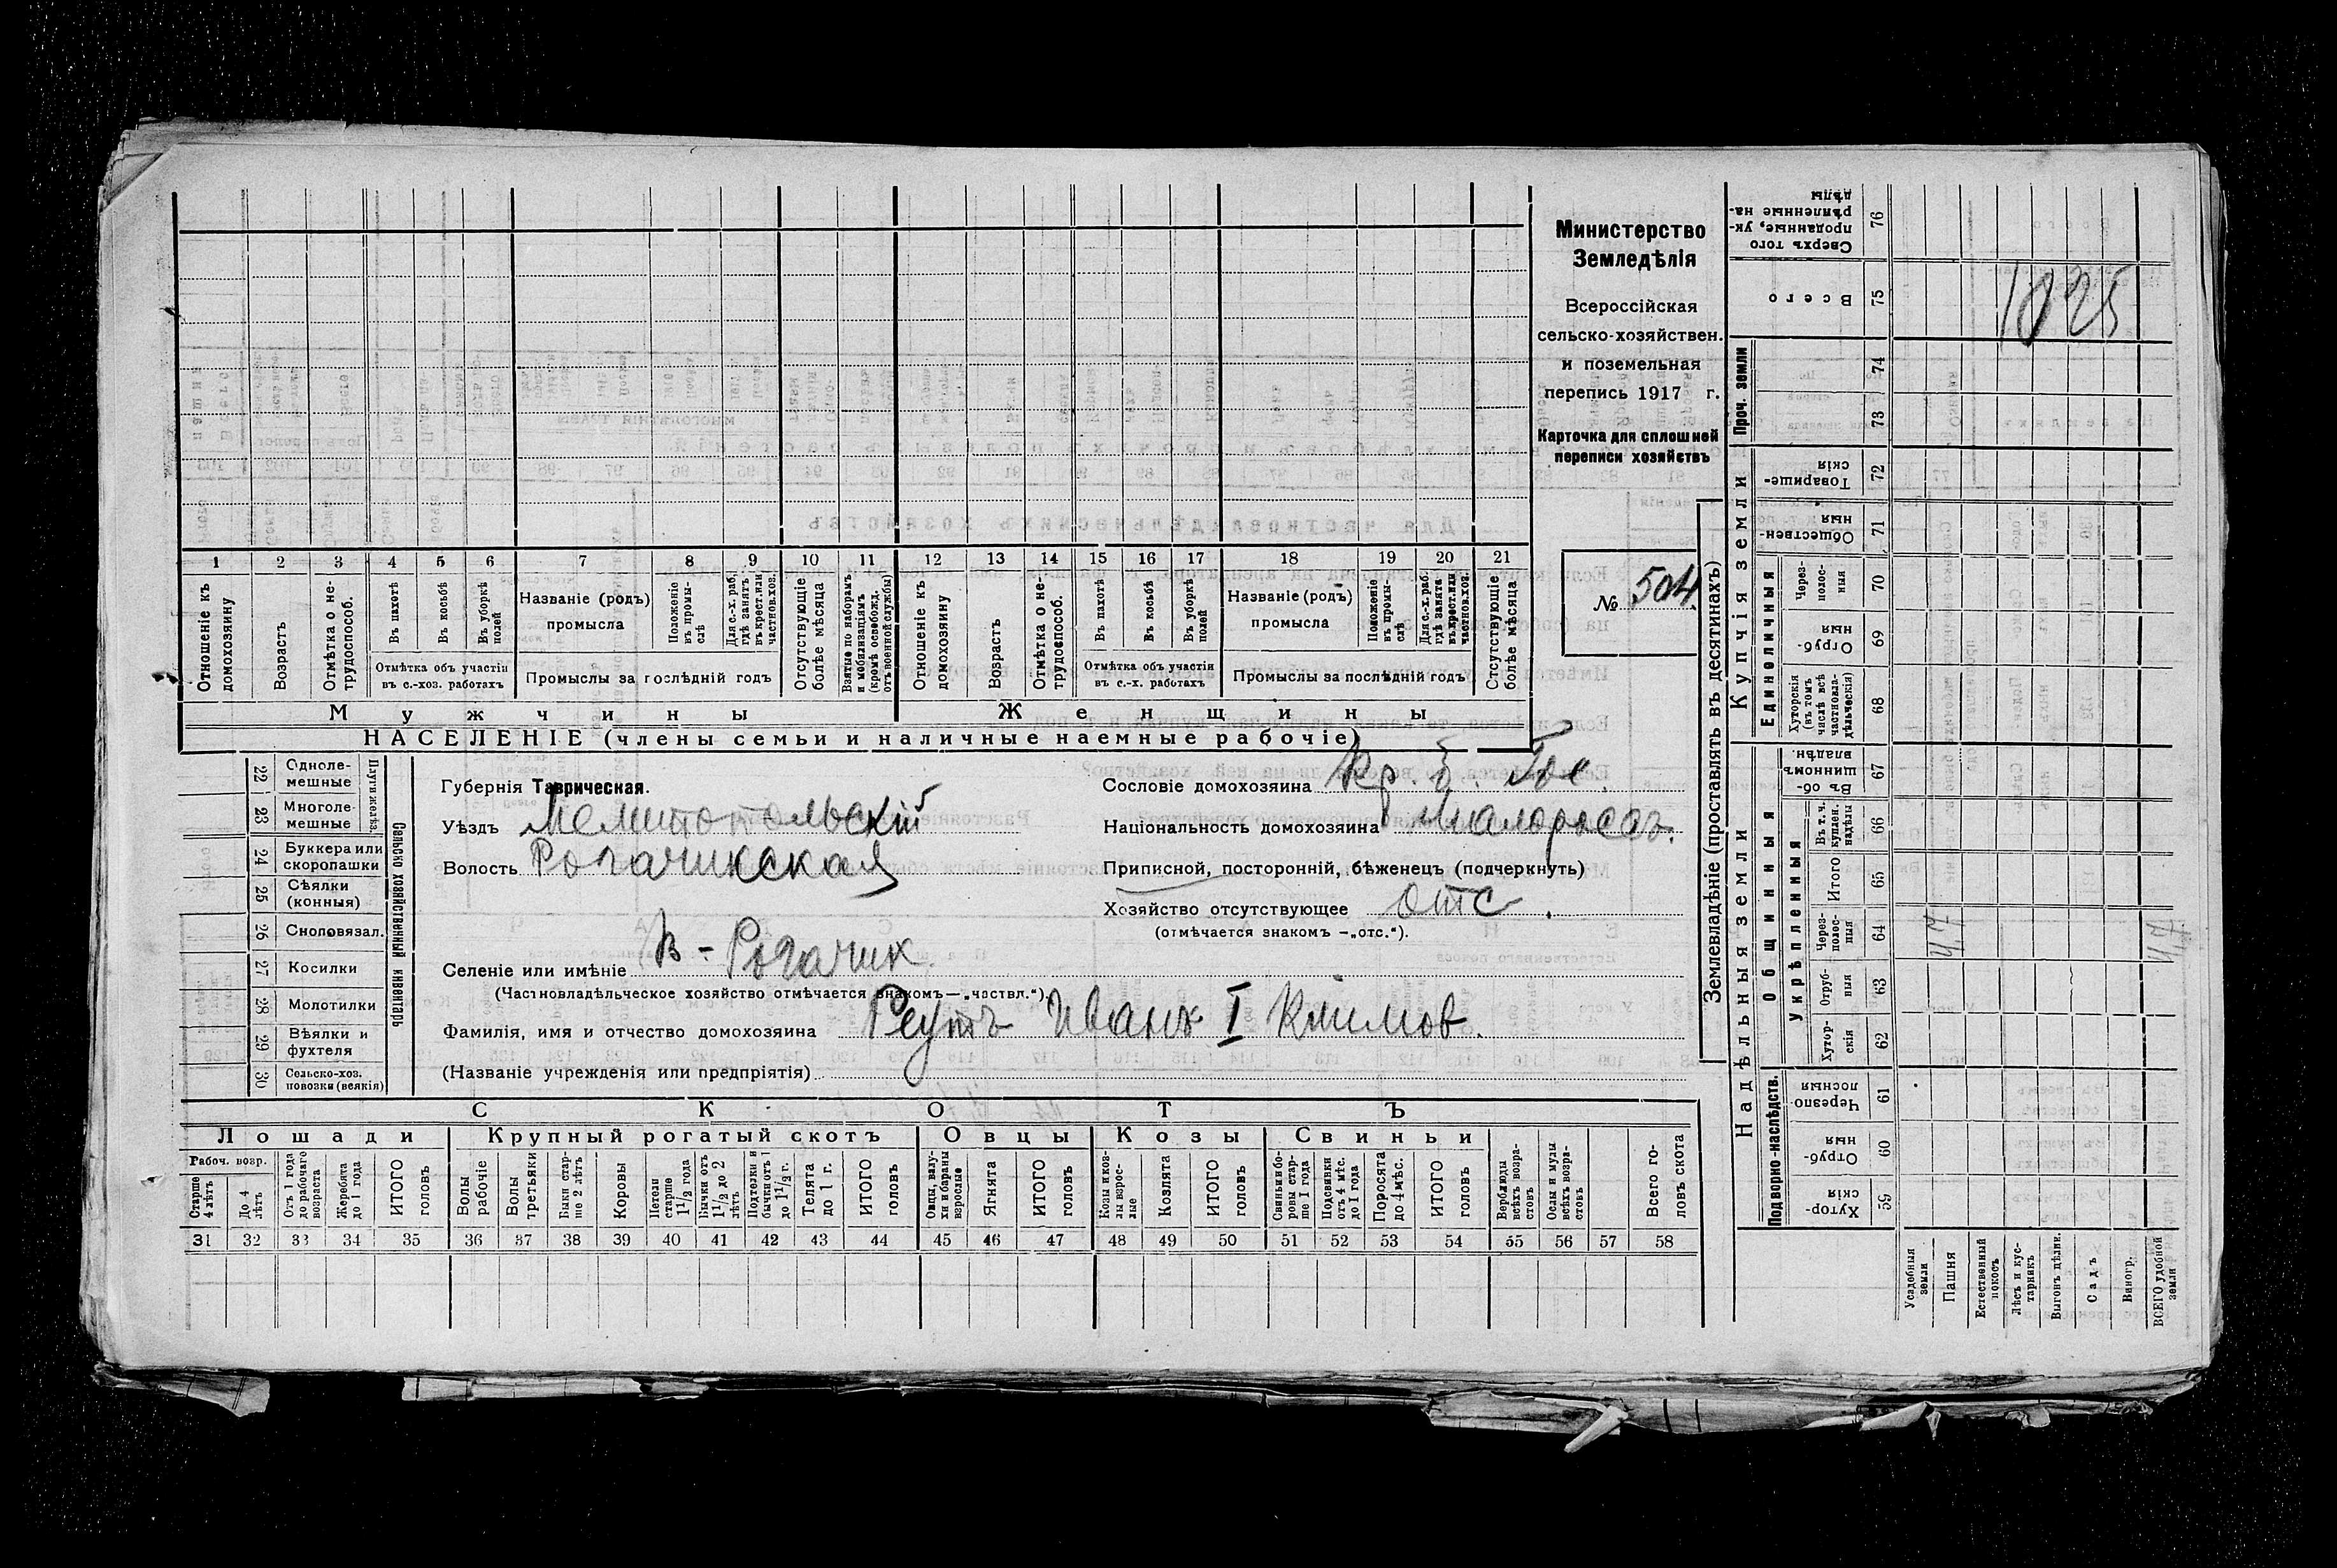 Министерство
Земледѣлія
Всероссійская
сельско-хозяйствен.
и поземельная
перепись 1917 г.
Карточка для сплошной
переписи хозяйствъ
№ 504
1 2 3 4 5 6 7 8 9 10 11 12 13 14 15 16 17 18 19 20 21
Отношеніе къ домохозяину
Возрастъ
Отмѣтка о не-трудоспособ.
Въ пахотѣ
Въ косьбѣ
Въ уборкѣ полей
Отмѣтка объ участіи въ с.-хоз. работахъ
Названіе (родъ) промысла
Положеніе въ промы-слѣ
Для с.-х. раб, гдѣ занятъ въ крест. или частнов. хоз.
Промыслы за послѣдній годъ
Отсутствующіе болѣе мѣсяца
Взятые по наборамъ и мобилизаціямъ (кромѣ освобожд. отъ военной службы)
Отношеніе къ домохозяину
Возрастъ
Отмѣтка о не-трудоспособ.
Въ пахотѣ
Въ косьбѣ
Въ уборкѣ полей
Отмѣтка объ участіи въ с.-х. работахъ
Названіе (родъ) промысла
Положеніе въ промы-слѣ
Для с.-х. раб. гдѣ занята въ крест. или частнов. хоз.
Промыслы за послѣдній годъ
Отсутствующіе болѣе мѣсяца
Мужчины Женщины
НАСЕЛЕНІЕ (члены семьи и наличные наемные рабочіе)
22 Одноле-мешные
23 Многоле-мешные
Плуги желѣз.
24 Буккера или скоропашки
25 Сѣялки (конныя)
26 Сноповязал.
27 Косилки
28 Молотилки
29 Вѣялки и фухтеля
30 Сельско-хоз. повозки (всякія)
Сельско хозяйственный инвентарь
Губернія Таврическая.
Уѣздъ Мелитопольскій
Волость Рогачикская
Селеніе или имѣніе В-Рогачик.
(Частновладѣльческое хозяйство отмѣчается знакомъ—„частвл.“).
Фамилія, имя и отчество домохозяина Реутъ Иванъ I Климов.
(Названіе учрежденія или предпріятія)
Сословіе домохозяина Кр.
Національность домохозяина малороссъ.
Приписной, посторонній, бѣженецъ (подчеркнуть)
Хозяйство отсутствующее отс.
(отмѣчается знакомъ —„отс.“).
СКОТЪ
Лошади Крупный рогатый скотъ Овцы Козы Свиньи
Рабоч. возр.
Старше 4 лѣтъ
До 4 лѣтъ
Отъ 1 года до рабочаго возраста
Жеребята до 1 года
ИТОГО головъ
Волы рабочіе
Волы третьяки
Быки стар-ше 2 лѣтъ
Коровы
Нетели старше 1 1/2 года
Бычки отъ 1 1/2 до 2 лѣтъ
Подтелки и бычки отъ 1 до 1 1/2 г.
Телята до 1 г.
ИТОГО головъ
Овцы, валу-хи и бараны взрослые
Ягнята
ИТОГО головъ
Козы и коз-лы взрос-лые
Козлята
ИТОГО головъ
Свиньи и бо-ровы стар-ше 1 года
Подсвинки отъ 4 мѣс. до 1 года
Поросята до 4 мѣс.
ИТОГО головъ
Верблюды всѣхъ возра-стовъ
Ослы и мулы всѣхъ возра-стовъ
Всего го-ловъ скота
31 32 33 34 35 36 37 38 39 40 41 42 43 44 45 46 47 48 49 50 51 52 53 54 55 56 57 58
Землевладѣніе (проставлять въ десятинахъ)
Надѣльныя земли
Купчія земли
Проч. земли
Подворно-наслѣдств.
Общинныя
Укрѣпленныя
Единоличныя
Сверхъ того проданные, ук-рѣпленные на-дѣлы 76
Всего 75
74
73
Товарище-скія 72
Обществен-ныя 71
Через-полос-ныя 70
Отруб-ныя 69
Хуторскія (въ томъ числѣ всѣ частновла-дѣльческія) 68
Въ об-щинномъ владѣн. 67
Въ т. ч. куплен. надѣлы 66
Итого 65
Через-полос-ныя 64
Отруб-ныя 63
Хутор-скія 62
Черезпо-лосныя 61
Отруб-ныя 60
Хутор-скія 59
Усадебныя земли
Пашня
Естественный покосъ
Лѣсъ и кус-тарникъ
Выгонъ цѣлик.
Садъ
Виногр.
ВСЕГО удобной земли
1025